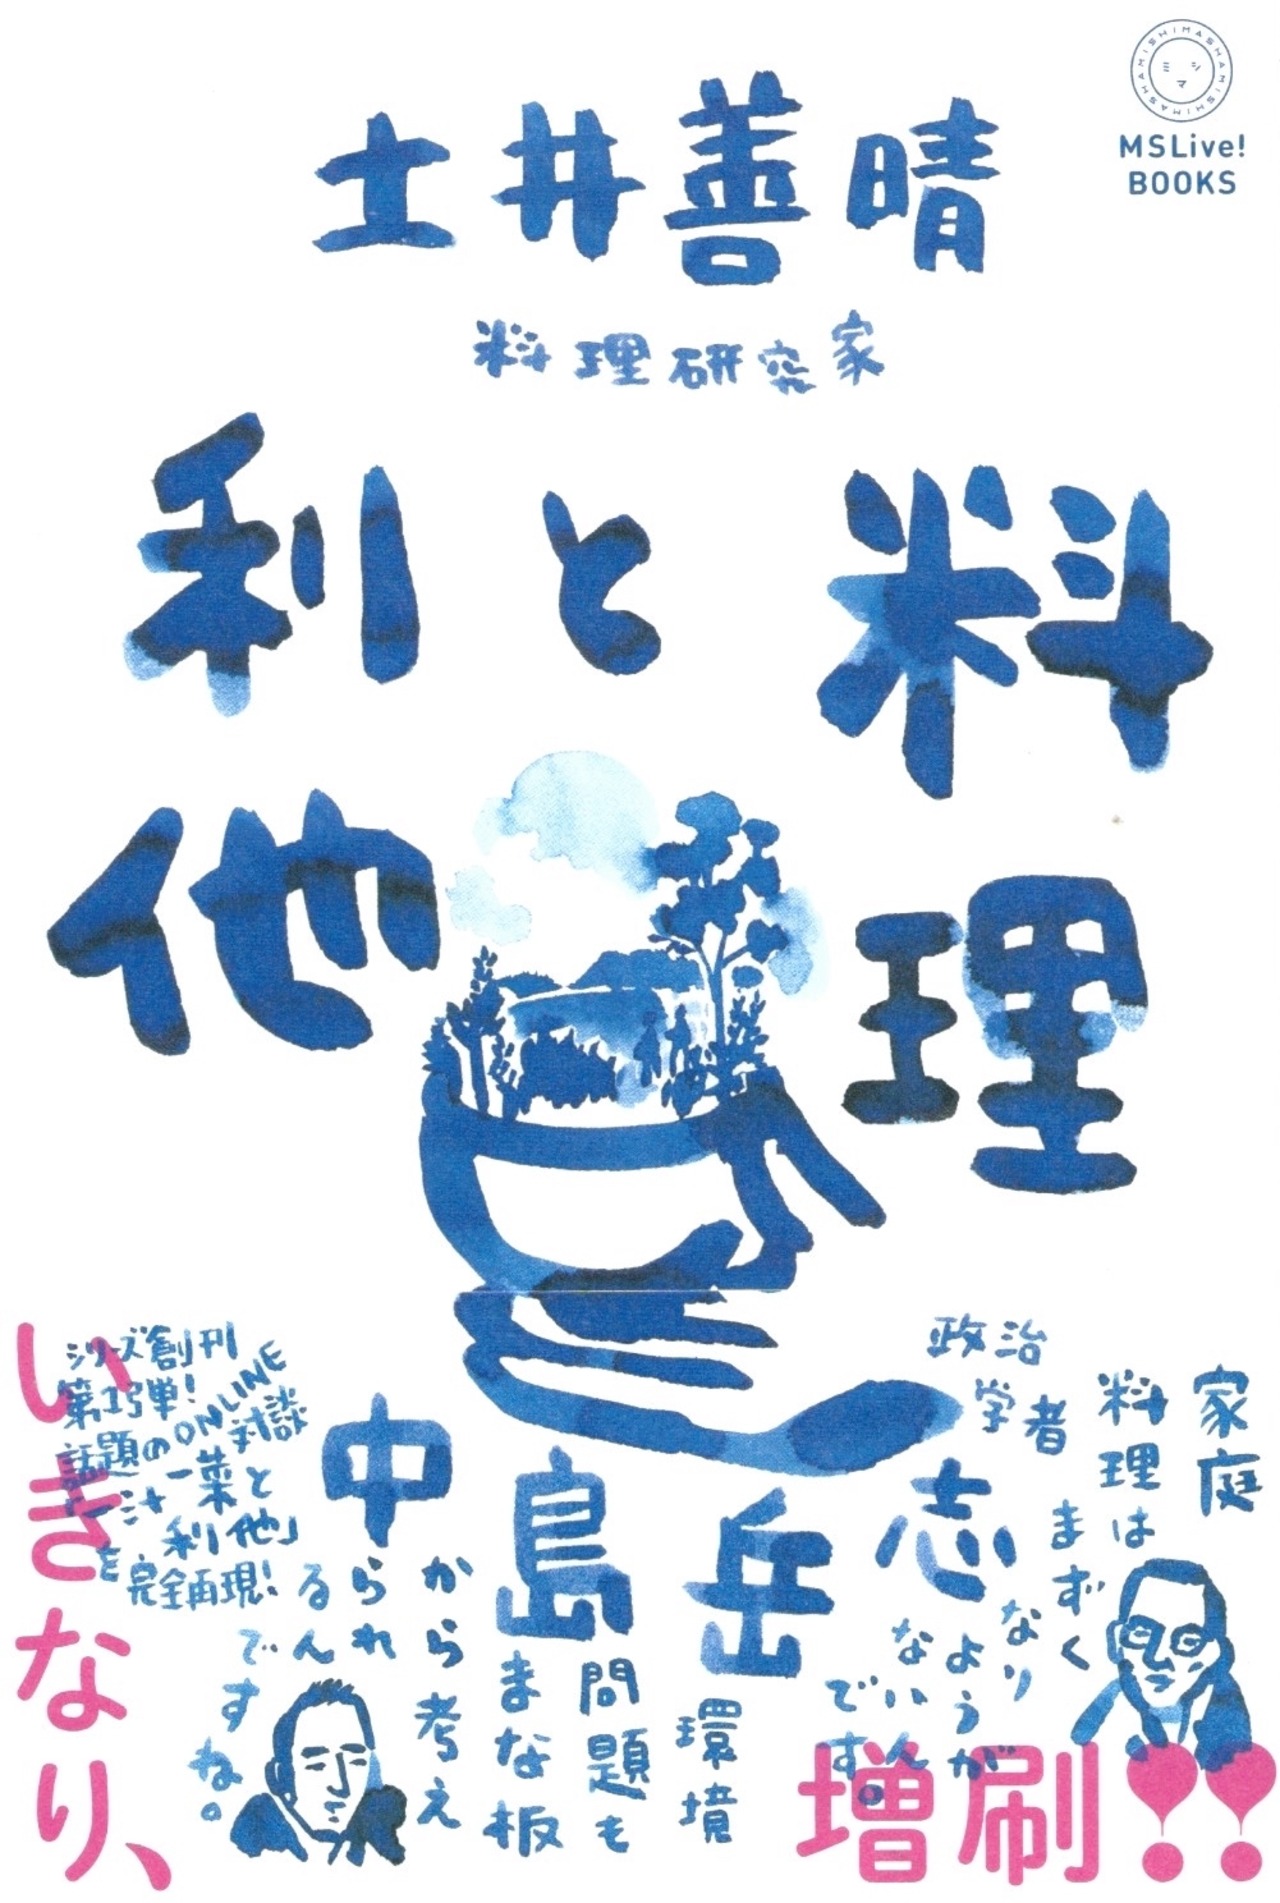 MISHIMASHAMISHIMASHAMISHIMASHA
ミシマ
MSLive!
BOOKS
土井善晴
料理研究家
料理
と
利他
政治学者
中島岳志
家庭
料理は
まずく
なり
ようが
ないん
です。
環境
問題も
まな板
から考え
られ
るん
です
ね。
シリーズ創刊
第1弾!
話題のONLINE対談
「一汁一菜と
利他」
を完全再現!
いきなり、
増刷!!